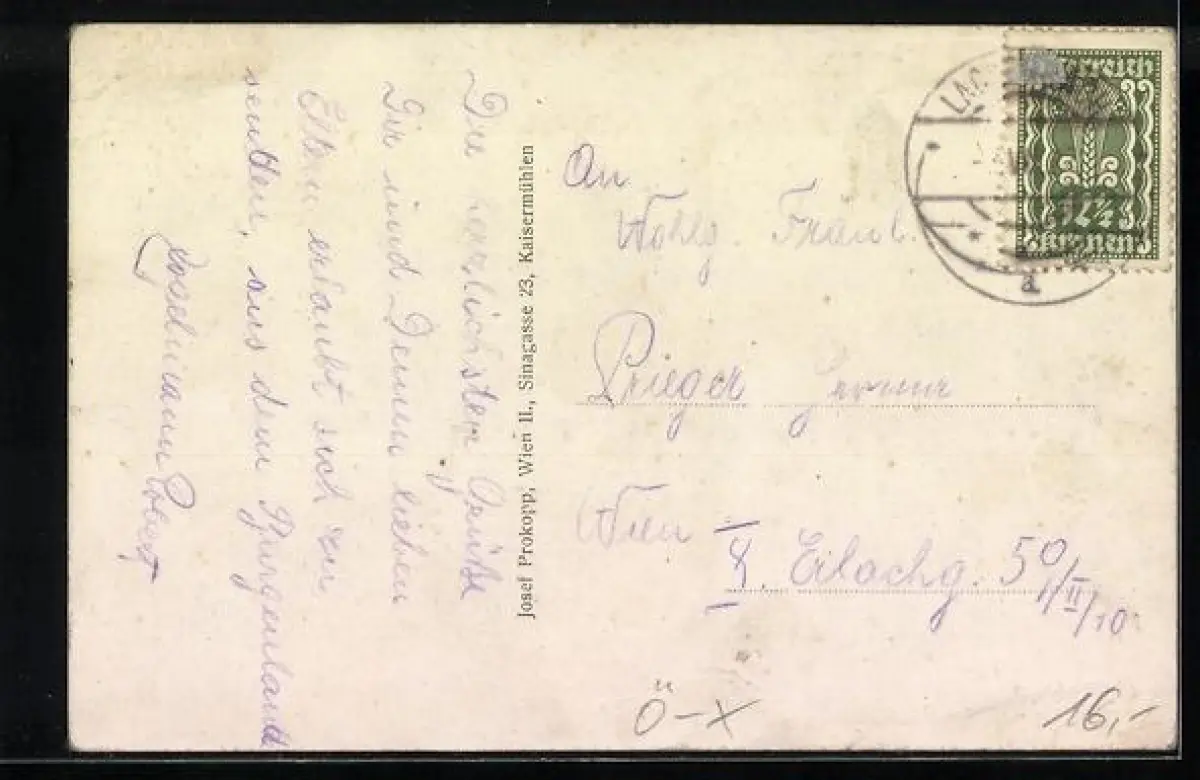 Die herzlichsten Grüße
Dir und Deinen lieben
Eltern erlaubt sich zu
senden, aus dem Burgenland
Josef Prokopp, Wien II., Sinagasse 23, Kaisermühlen
An
Wohlg. Fräul.
Prieger
Wien X. Eilachg. 50/II/10
Österreich
Kronen
a
Ö-X
16,-